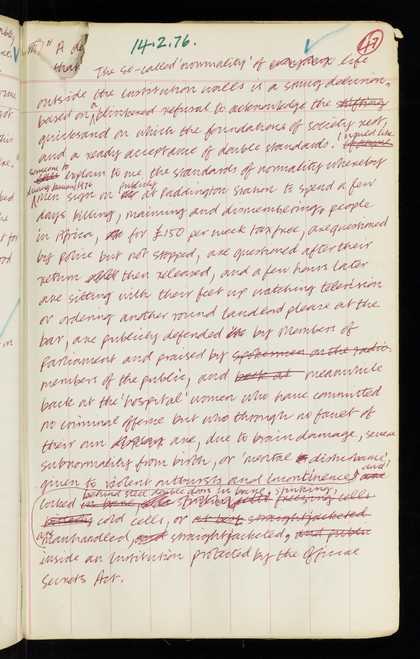 14.2.76.
47
The so-called 'normality' of life
outside the institution walls is a smug delusion,
based on a blinkered refusal to acknowledge the shifting
quicksand on which the foundations of society rest,
and a ready acceptance of double standards. I would like
someone to explain to me the standards of normality whereby
during January 1976
men sign on publicly at Paddington Station to spend a few
days killing, maiming and dismembering people
in Africa, for £150 per week tax free, are questioned
by police but not stopped, are questioned after their
return then released, and a few hours later
are sitting with their feet up watching television
or ordering another round landlord please at the
bar, are publicly defended by Members of
Parliament and praised by spokesmen on the radio
members of the public, and back at meanwhile
back at the 'hospital' women who have committed
no criminal offense but who through no facet of
their own are, due to brain damage, severe
subnormality from birth, or 'mental disturbance',
given to violent outbursts and incontinence, and
are
behind steel doors in bare, stinking,
locked freezing cells
cold cells, or at best straightjacketed
are
manhandled, and straightjacketed, and public
inside an Institution protected by the Official
Secrets Act.